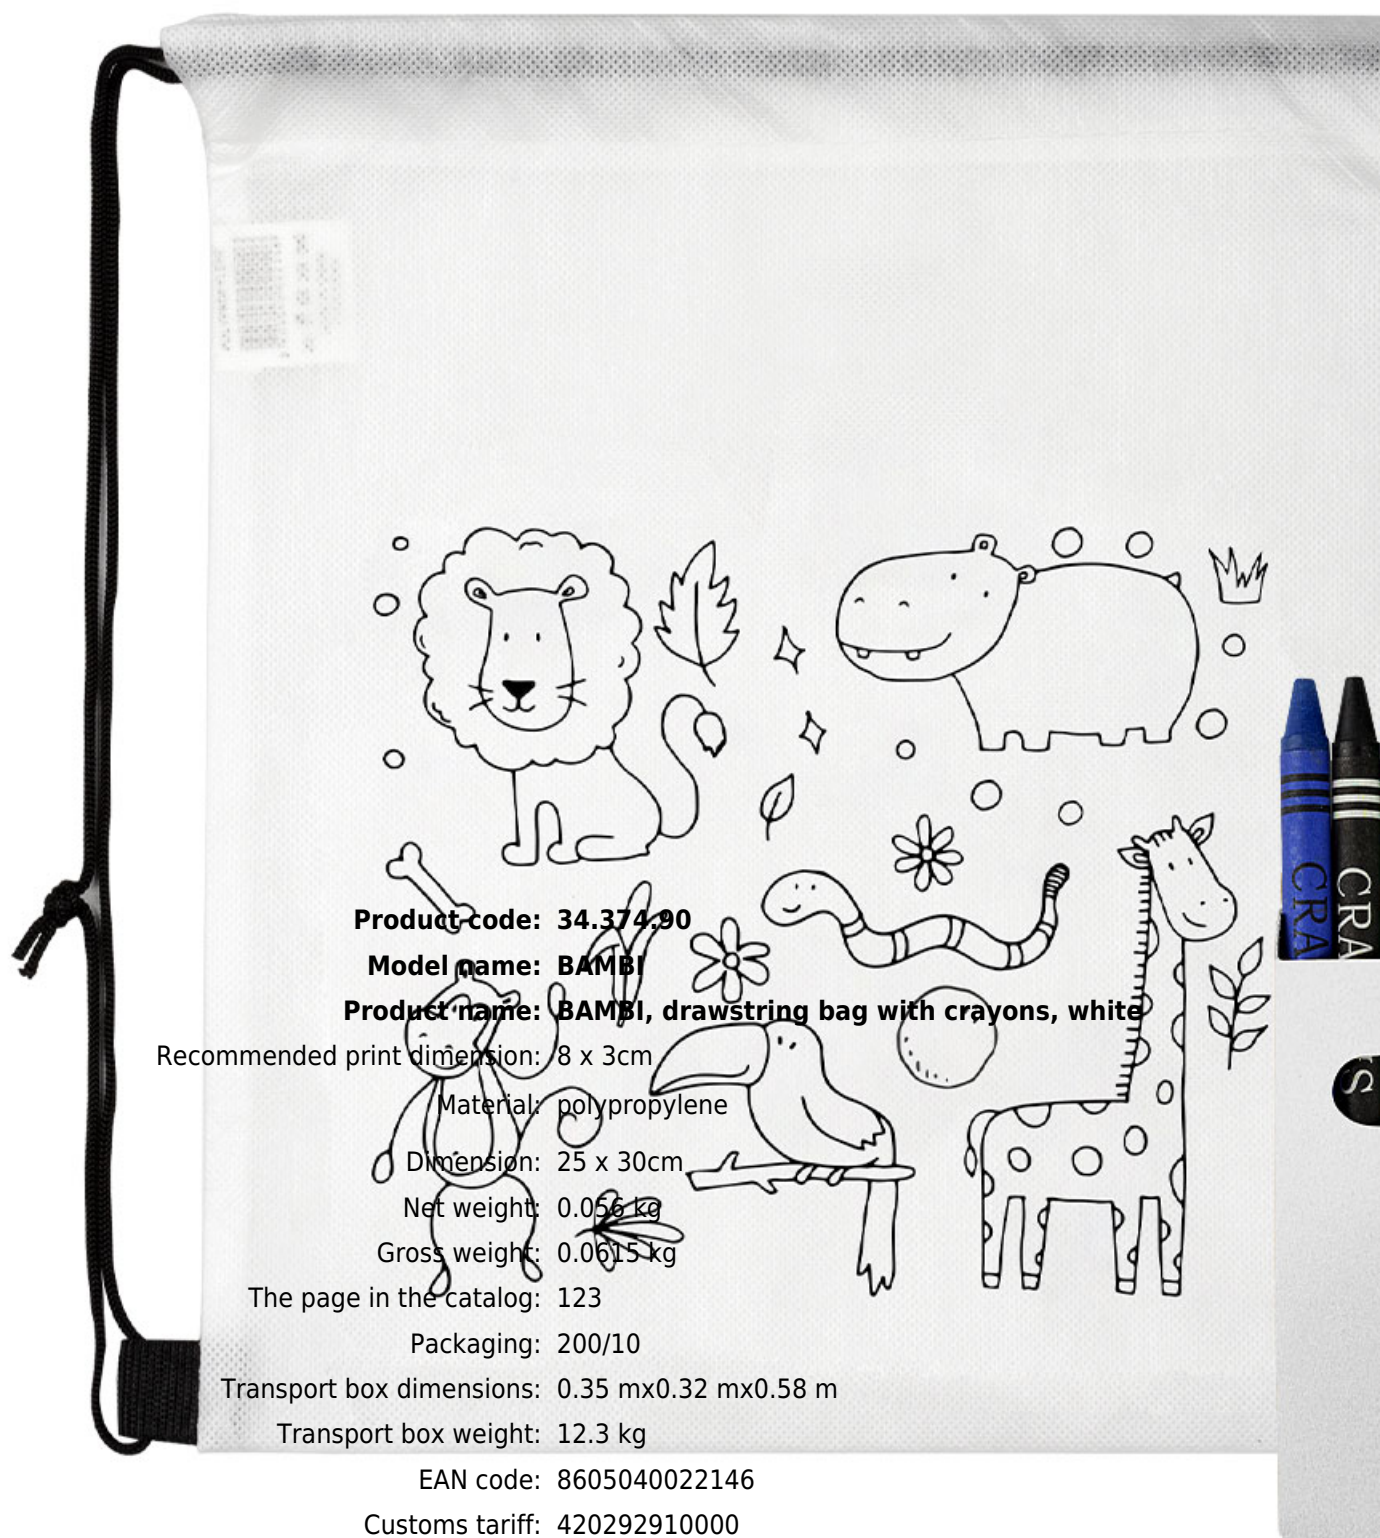 CRA
CRA
Product code: 34.374.90
Model name: BAMBI
Product name: BAMBI, drawstring bag with crayons, white
Recommended print dimension: 8 x 3cm
Material: polypropylene
Dimension: 25 x 30cm
Net weight: 0.056 kg
Gross weight: 0.0615 kg
The page in the catalog: 123
Packaging: 200/10
Transport box dimensions: 0.35 mx0.32 mx0.58 m
Transport box weight: 12.3 kg
EAN code: 8605040022146
Customs tariff: 420292910000